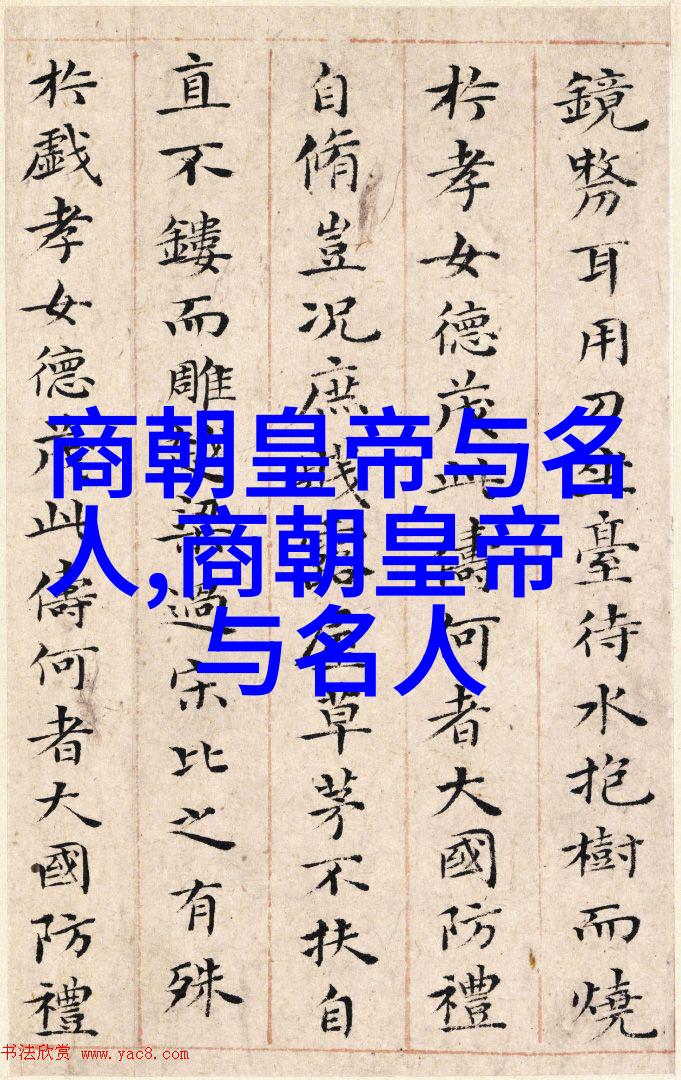 鏡剺耳用刀坐臺待水抱樹而燒
於孝女德茂此儔何者大國防禮
自脩豈況庶賤露屋草茅不扶自
直不鏤而雕越梁過宋比之有殊
於戲孝女德茂此儔何者大國防禮
商朝皇帝与名
人,商朝皇帝
与名人
书法欣赏 www.yac8.com